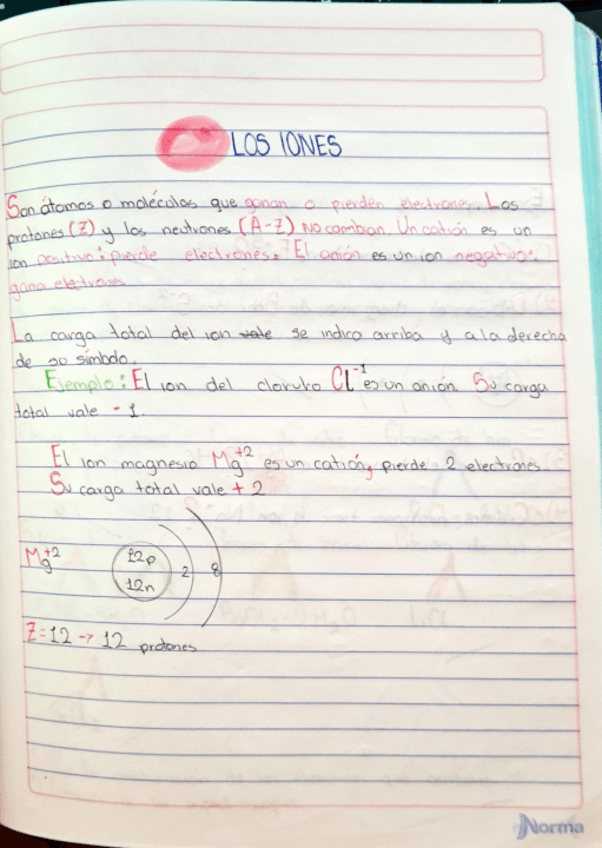 LOS IONES
Son átomos o moléculas que ganan o pierden electrones. Los
protones (Z) y los neutrones (A-Z) No cambian. Un catión es un
ion positivo: pierde electrones. El anión es un ion negativo:
gana electrones
La carga total del ion vale se indica arriba y a la derecha
de su símbolo.
Ejemplo: El ion del cloruro Cl⁻¹ es un anión. Su carga
total vale -1.
El ion magnesio Mg⁺² es un catión, pierde 2 electrones.
Su carga total vale +2
Mg⁺² 12p 2 8
12n
Z=12 → 12 protones
Norma